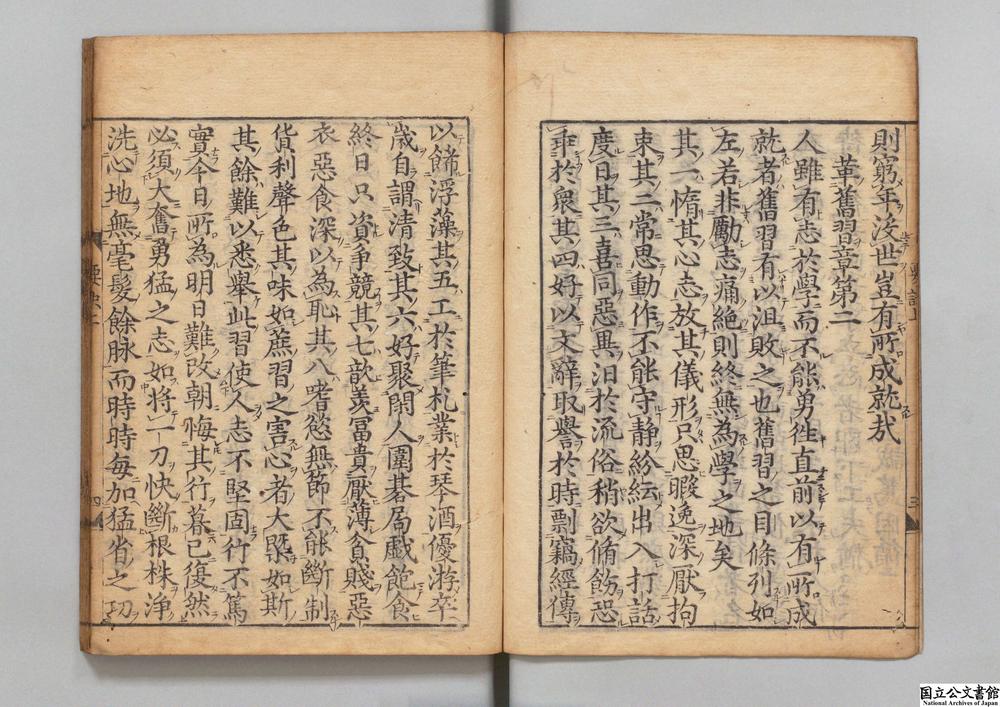 則窮年沒世豈有所成就㢤
革舊習章第二
人雖有志於學而不能勇徃直前以有所成
就者舊習有以沮敗之也舊習之目條列如
左若非勵志痛絶則終無為學之地矣
其一惰其心志放其儀形只思暇逸深厭拘
束其二常思動作不能守静紛紜出入打話
度日其三喜同惡異汨於流俗稍欲脩飭恐
乖於衆其四好以文辭取譽於時剽竊經傳
以餙浮藻其五工於筆札業於琴酒優游卒
歳自謂清致其六好聚閑人圍碁局戯飽食
終日只資争競其七歆羡冨貴厭薄貧賤惡
衣惡食深以為恥其八嗜慾無節不能斷制
貨利聲色其味如蔗習之害心者大槩如斯
其餘難以悉舉此習使人志不堅固行不篤
實今日所為明日難改朝悔其行暮已復然
必須大奮勇猛之志如將一刀快斷根株净
洗心地無毫髪餘脉而時時每加猛省之功
要訣上
三
四
国立公文書館
National Archives of Japan